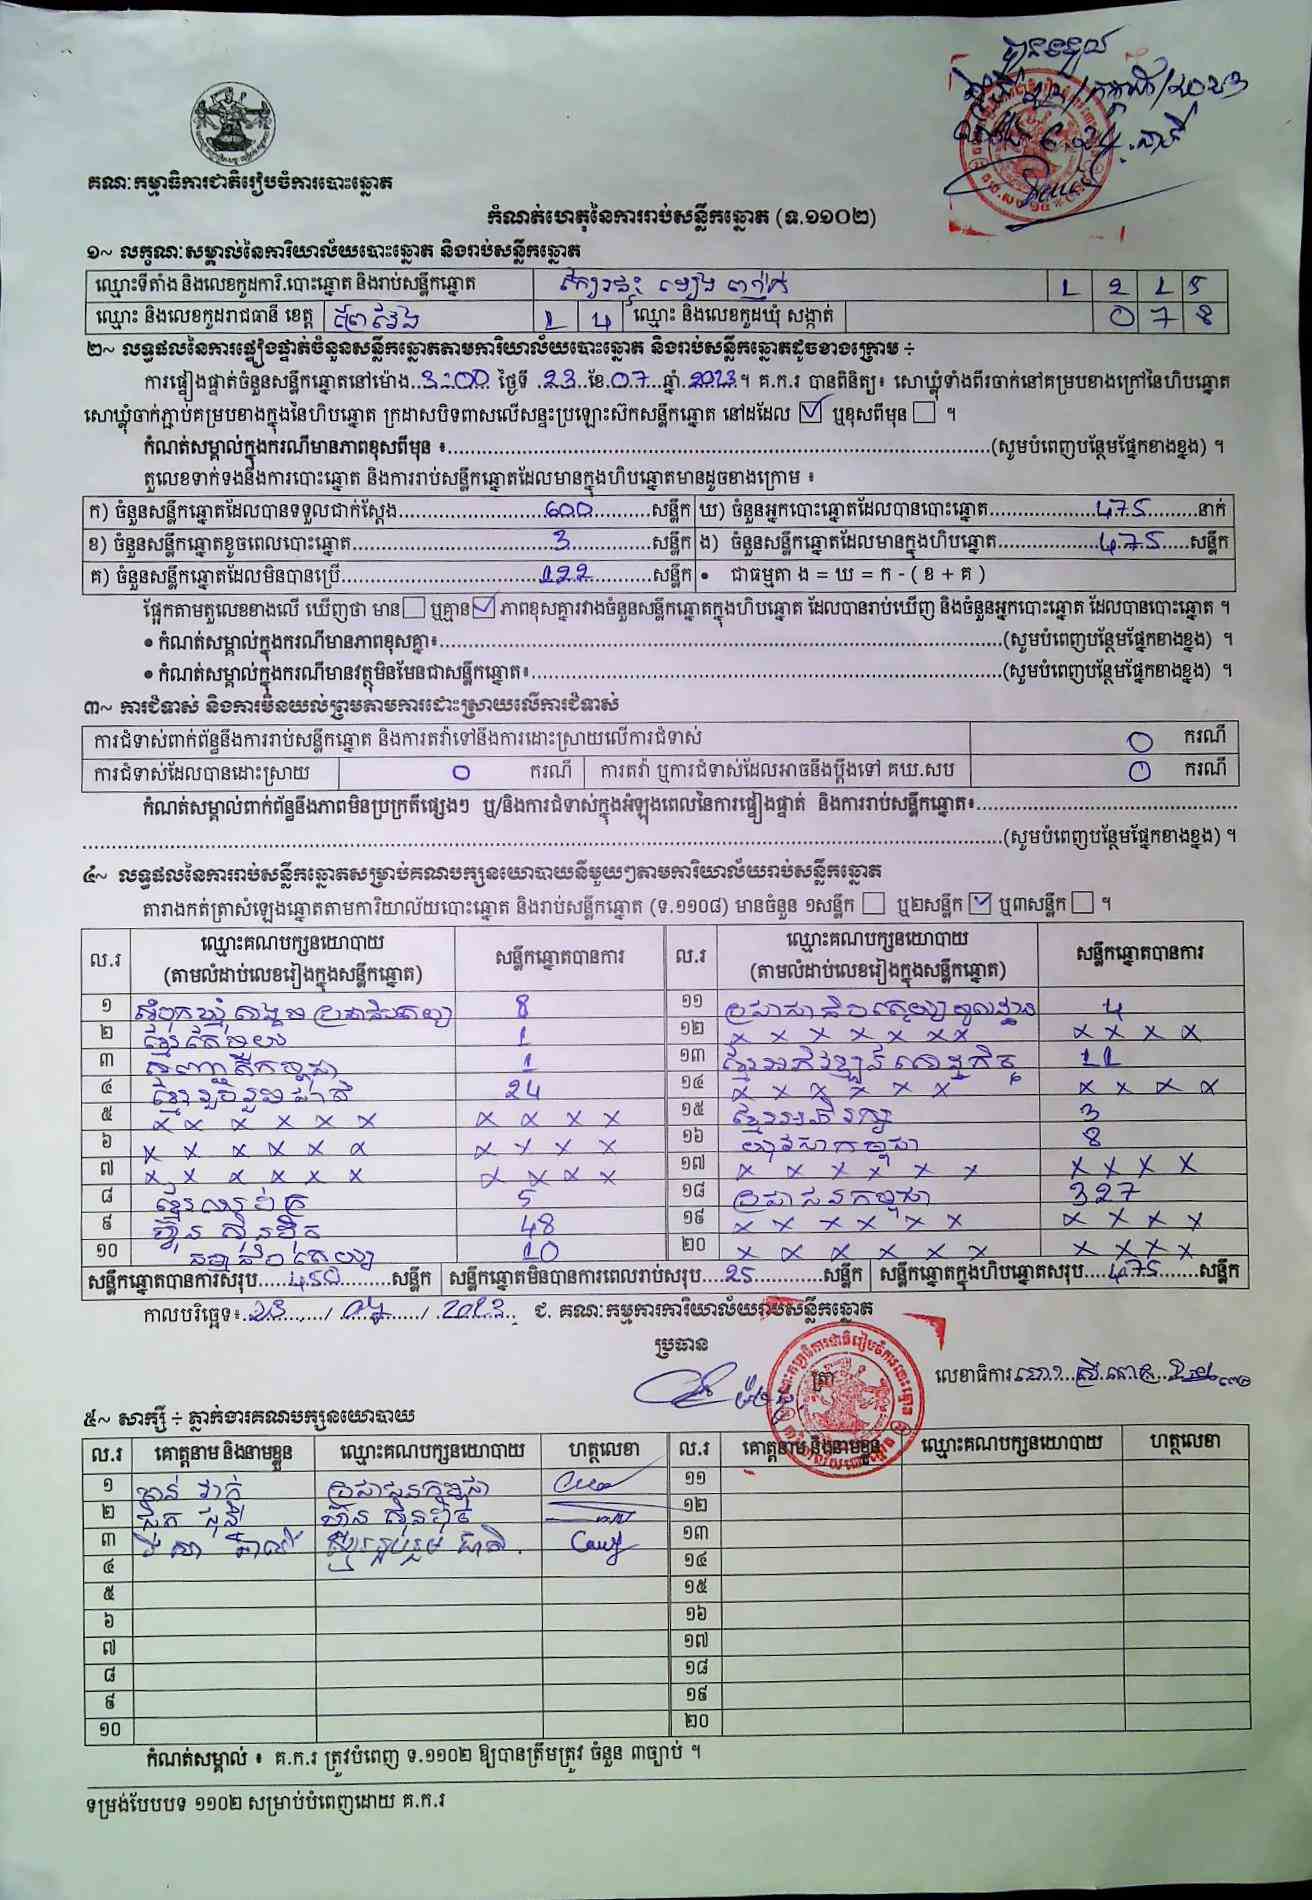 បានទទួល
គណៈកម្មាធិការជាតិរៀបចំការបោះឆ្នោត
កំណត់ហេតុនៃការរាប់សន្លឹកឆ្នោត (ទ.១១០២)
១~ លក្ខណៈសម្គាល់នៃការិយាល័យបោះឆ្នោត និងរាប់សន្លឹកឆ្នោត
ឈ្មោះទីតាំង និងលេខកូដការិ.បោះឆ្នោត និងរាប់សន្លឹកឆ្នោត 1 2 1 5
ឈ្មោះ និងលេខកូដរាជធានី ខេត្ត ព្រៃវែង 1 4 ឈ្មោះ និងលេខកូដឃុំ សង្កាត់ 0 7 8
២~ លទ្ធផលនៃការផ្ទៀងផ្ទាត់ចំនួនសន្លឹកឆ្នោតតាមការិយាល័យបោះឆ្នោត និងរាប់សន្លឹកឆ្នោតដូចខាងក្រោម ÷
ការផ្ទៀងផ្ទាត់ចំនួនសន្លឹកឆ្នោតនៅម៉ោង..3:00 ថ្ងៃទី .23..ខែ.07...ឆ្នាំ.2023។ គ.ក.រ បានពិនិត្យ៖ សោឃ្លុំទាំងពីរចាក់នៅគម្របខាងក្រៅនៃហិបឆ្នោត
សោឃ្លុំចាក់ភ្ជាប់គម្របខាងក្នុងនៃហិបឆ្នោត ក្រដាសបិទពាសលើសន្ទះប្រឡោះស៊កសន្លឹកឆ្នោត នៅដដែល ☑ ឬខុសពីមុន ☐ ។
កំណត់សម្គាល់ក្នុងករណីមានភាពខុសពីមុន ៖...(សូមបំពេញបន្ថែមផ្នែកខាងខ្នង) ។
តួលេខទាក់ទងនឹងការបោះឆ្នោត និងការរាប់សន្លឹកឆ្នោតដែលមានក្នុងហិបឆ្នោតមានដូចខាងក្រោម ៖
ក) ចំនួនសន្លឹកឆ្នោតដែលបានទទួលជាក់ស្តែង...600...សន្លឹក ឃ) ចំនួនអ្នកបោះឆ្នោតដែលបានបោះឆ្នោត...475...នាក់
ខ) ចំនួនសន្លឹកឆ្នោតខូចពេលបោះឆ្នោត...3...សន្លឹក ង) ចំនួនសន្លឹកឆ្នោតដែលមានក្នុងហិបឆ្នោត...475...សន្លឹក
គ) ចំនួនសន្លឹកឆ្នោតដែលមិនបានប្រើ...122...សន្លឹក • ជាធម្មតា ង = ឃ = ក - ( ខ + គ )
ផ្អែកតាមតួលេខខាងលើ ឃើញថា មាន☐ ឬគ្មាន☑ ភាពខុសគ្នារវាងចំនួនសន្លឹកឆ្នោតក្នុងហិបឆ្នោត ដែលបានរាប់ឃើញ និងចំនួនអ្នកបោះឆ្នោត ដែលបានបោះឆ្នោត ។
• កំណត់សម្គាល់ក្នុងករណីមានភាពខុសគ្នា៖...(សូមបំពេញបន្ថែមផ្នែកខាងខ្នង) ។
• កំណត់សម្គាល់ក្នុងករណីមានវត្ថុមិនមែនជាសន្លឹកឆ្នោត៖...(សូមបំពេញបន្ថែមផ្នែកខាងខ្នង) ។
៣~ ការជំទាស់ និងការមិនយល់ព្រមតាមការដោះស្រាយលើការជំទាស់
ការជំទាស់ពាក់ព័ន្ធនឹងការរាប់សន្លឹកឆ្នោត និងការតវ៉ាទៅនឹងការដោះស្រាយលើការជំទាស់ 0 ករណី
ការជំទាស់ដែលបានដោះស្រាយ 0 ករណី ការតវ៉ា ឬការជំទាស់ដែលអាចនឹងប្តឹងទៅ គឃ.សប 0 ករណី
កំណត់សម្គាល់ពាក់ព័ន្ធនឹងភាពមិនប្រក្រតីផ្សេងៗ ឬ/និងការជំទាស់ក្នុងអំឡុងពេលនៃការផ្ទៀងផ្ទាត់ និងការរាប់សន្លឹកឆ្នោត៖...
...(សូមបំពេញបន្ថែមផ្នែកខាងខ្នង) ។
៤~ លទ្ធផលនៃការរាប់សន្លឹកឆ្នោតសម្រាប់គណបក្សនយោបាយនីមួយៗតាមការិយាល័យរាប់សន្លឹកឆ្នោត
តារាងកត់ត្រាសំឡេងឆ្នោតតាមការិយាល័យបោះឆ្នោត និងរាប់សន្លឹកឆ្នោត (ទ.១១០៨) មានចំនួន ១សន្លឹក ☐ ឬ២សន្លឹក ☑ ឬ៣សន្លឹក ☐ ។
ល.រ ឈ្មោះគណបក្សនយោបាយ (តាមលំដាប់លេខរៀងក្នុងសន្លឹកឆ្នោត) សន្លឹកឆ្នោតបានការ ល.រ ឈ្មោះគណបក្សនយោបាយ (តាមលំដាប់លេខរៀងក្នុងសន្លឹកឆ្នោត) សន្លឹកឆ្នោតបានការ
១ សំបុកឃ្មុំសង្គមប្រជាធិបតេយ្យ 8 ១១ ប្រជាធិបតេយ្យមូលដ្ឋាន 4
២ ខ្មែរតែមួយ 1 ១២ x x x x x x x x x x x
៣ កម្ពុជា 1 ១៣ ខ្មែរអភិវឌ្ឍន៍សេដ្ឋកិច្ច 11
៤ ខ្មែររួបរួមជាតិ 24 ១៤ x x x x x x x x x x
៥ x x x x x x x x x x ១៥ ខ្មែរអភិរក្ស 3
៦ x x x x x x x x x x ១៦ យុវជនកម្ពុជា 8
៧ x x x x x x x x x x ១៧ x x x x x x x x x x
៨ 5 ១៨ ប្រជាជនកម្ពុជា 327
៩ ហ៊្វុនស៊ិនប៉ិច 48 ១៩ x x x x x x x x x x
១០ ធម្មាធិបតេយ្យ 10 ២០ x x x x x x x x x x
សន្លឹកឆ្នោតបានការសរុប...450...សន្លឹក សន្លឹកឆ្នោតមិនបានការពេលរាប់សរុប...25...សន្លឹក សន្លឹកឆ្នោតក្នុងហិបឆ្នោតសរុប...475...សន្លឹក
កាលបរិច្ឆេទ៖ ២៣ / ០៧ / ២០២៣ ជ. គណៈកម្មការការិយាល័យរាប់សន្លឹកឆ្នោត
ប្រធាន
ត្រា
លេខាធិការ
៥~ សាក្សី ÷ ភ្នាក់ងារគណបក្សនយោបាយ
ល.រ គោត្តនាម និងនាមខ្លួន ឈ្មោះគណបក្សនយោបាយ ហត្ថលេខា ល.រ គោត្តនាម និងនាមខ្លួន ឈ្មោះគណបក្សនយោបាយ ហត្ថលេខា
១ ប្រជាជនកម្ពុជា ១១
២ ហ៊្វុនស៊ិនប៉ិច ១២
៣ ខ្មែររួបរួមជាតិ ១៣
៤ ១៤
៥ ១៥
៦ ១៦
៧ ១៧
៨ ១៨
៩ ១៩
១០ ២០
កំណត់សម្គាល់ ៖ គ.ក.រ ត្រូវបំពេញ ទ.១១០២ ឱ្យបានត្រឹមត្រូវ ចំនួន ៣ច្បាប់ ។
ទម្រង់បែបបទ ១១០២ សម្រាប់បំពេញដោយ គ.ក.រ